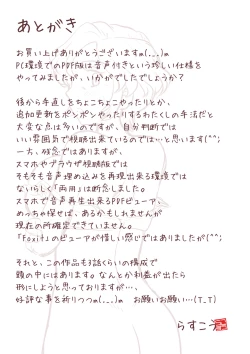 あとがき
お買い上げありがとうございますm(_._)m
PC環境でのPDF版は音声付きという珍しい仕様を
やってみましたが、いかがでしたでしょうか?
後から手直しをちょこちょこやったりとか、
追加更新をポンポンやったりするわたくしの手法だと
大変な点は多いのですが、自分判断では
いい雰囲気で視聴出来ているのでは…と思います(^^;
一方、残念ではありますが、
スマホやブラウザ視聴版では
そもそも音声埋め込みを再現出来る環境では
ないらしく「両用」は断念しました。
スマホで音声再生出来るPDFビューア、
めっちゃ探せば、あるかもしれませんが
現在の所確定できていません。
「Foxit」のビューアが惜しい感じではありましたが(^^;
それと、この作品も3話くらいの構成で
頭の中にはあります。なんとか利益が出たら
形にしようと思っておりますが…、
好評な事を祈りつつm(_._)m お願いお願い…(T_T)
らすこう